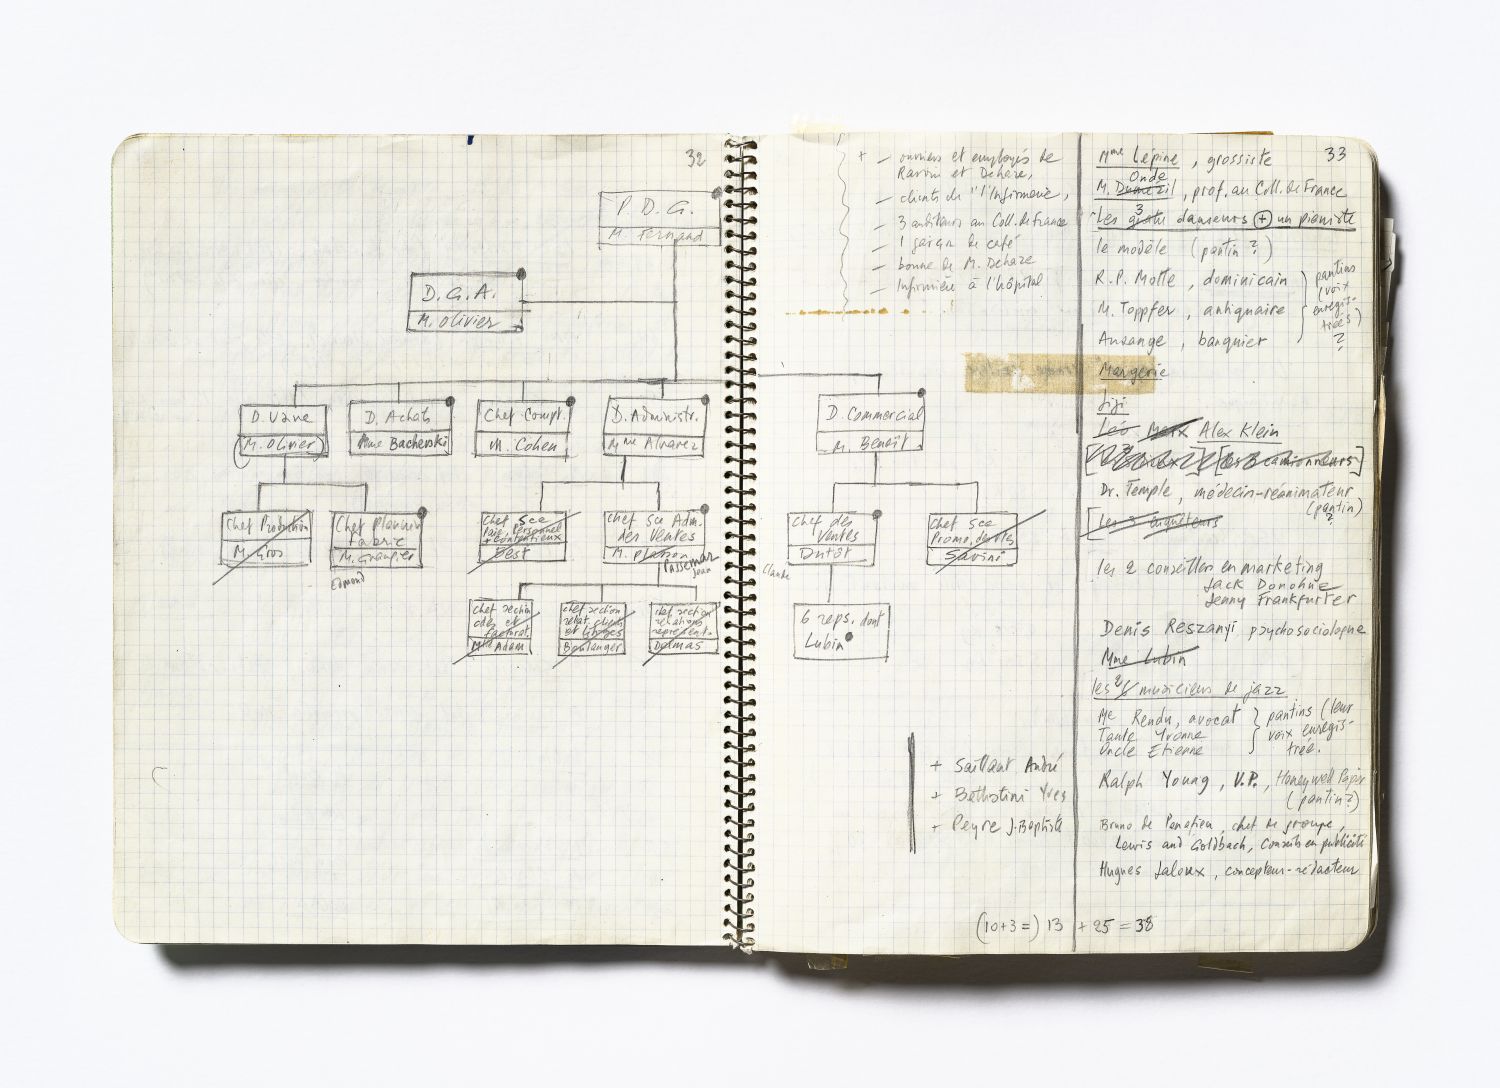 32
P. D. G.
M. Fernand
D. G. A.
M. Olivier
D. Usine
(M. Olivier)
D. Achats
Mme Bacherski
Chef Compt.
M. Cohen
D. Administr.
Mme Alvarez
D. Commercial
M. Benoît
Chef Production
M. Gros
Chef Planning
Fabric
M. Grangier
Edmond
Chef Sce
Paie, Personnel
+ Contentieux
Pest
Chef Sce Adm.
des Ventes
M.
Passemar
Jean
Chef des
Ventes
Dutôt
Claude
Chef Sce
Promo. de
Savini
Chef section
cdes et
facturat.
Mme Adam
Chef section
relat. clients
et litiges
Boulanger
Chef section
relations
représent.
Dalmas
6 reps. dont
Lubin
+ – ouvriers et employés de
Ravoire et Dehaze,
– clients de l'Infirmerie,
– 3 auditeurs au Coll. de France
– 1 garçon de café
– bonne de M. Dehaze
– Infirmière à l'hôpital
+ Saillant André
+ Bethstini Yves
+ Peyre J. Baptiste
33
Mme Lépine, grossiste
Onde
M. Dumézil, prof. au Coll. de France
Les 3 danseurs + un pianiste
le modèle (pantin ?)
R.P. Motte, dominicain
M. Toppfer, antiquaire
Ausange, banquier
pantins
(voix
enregis-
trées)
?
Mangerie
Jiji
Léo Marx Alex Klein
les 3 camionneurs
Dr. Temple, médecin-réanimateur
(pantin)
?
[les 3 enquêteurs
les 2 conseillers en marketing
Jack Donohue
Jenny Frankfurter
Denis Reszanyi, psychosociologue
Mme Lubin
les 2 musiciens de jazz
Me Rendu, avocat
Tante Yvonne
Oncle Etienne
pantins (leur
voix enregis-
trée.
Ralph Young, V.P., Honeywell Paper
(pantin ?)
Bruno de Panafieu, chef de groupe,
Lewis and Goldbach, Conseils en publicité
Hugues Jaloux, concepteur-rédacteur
(10+3=) 13 + 25 = 38